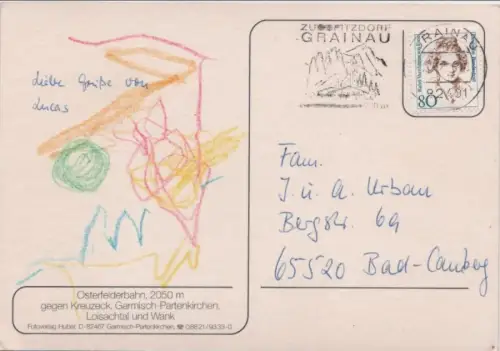 Liebe Grüße von
Lucas
ZUGSPITZDORF
GRAINAU
GRAINAU
80
Fam.
J. u. A. Urban
Bergstr. 69
65520 Bad-Camberg
Osterfelderbahn, 2050 m
gegen Kreuzeck, Garmisch-Partenkirchen,
Loisachtal und Wank
Fotoverlag Huber, D-82467 Garmisch-Partenkirchen, ☎ 08821/9339-0